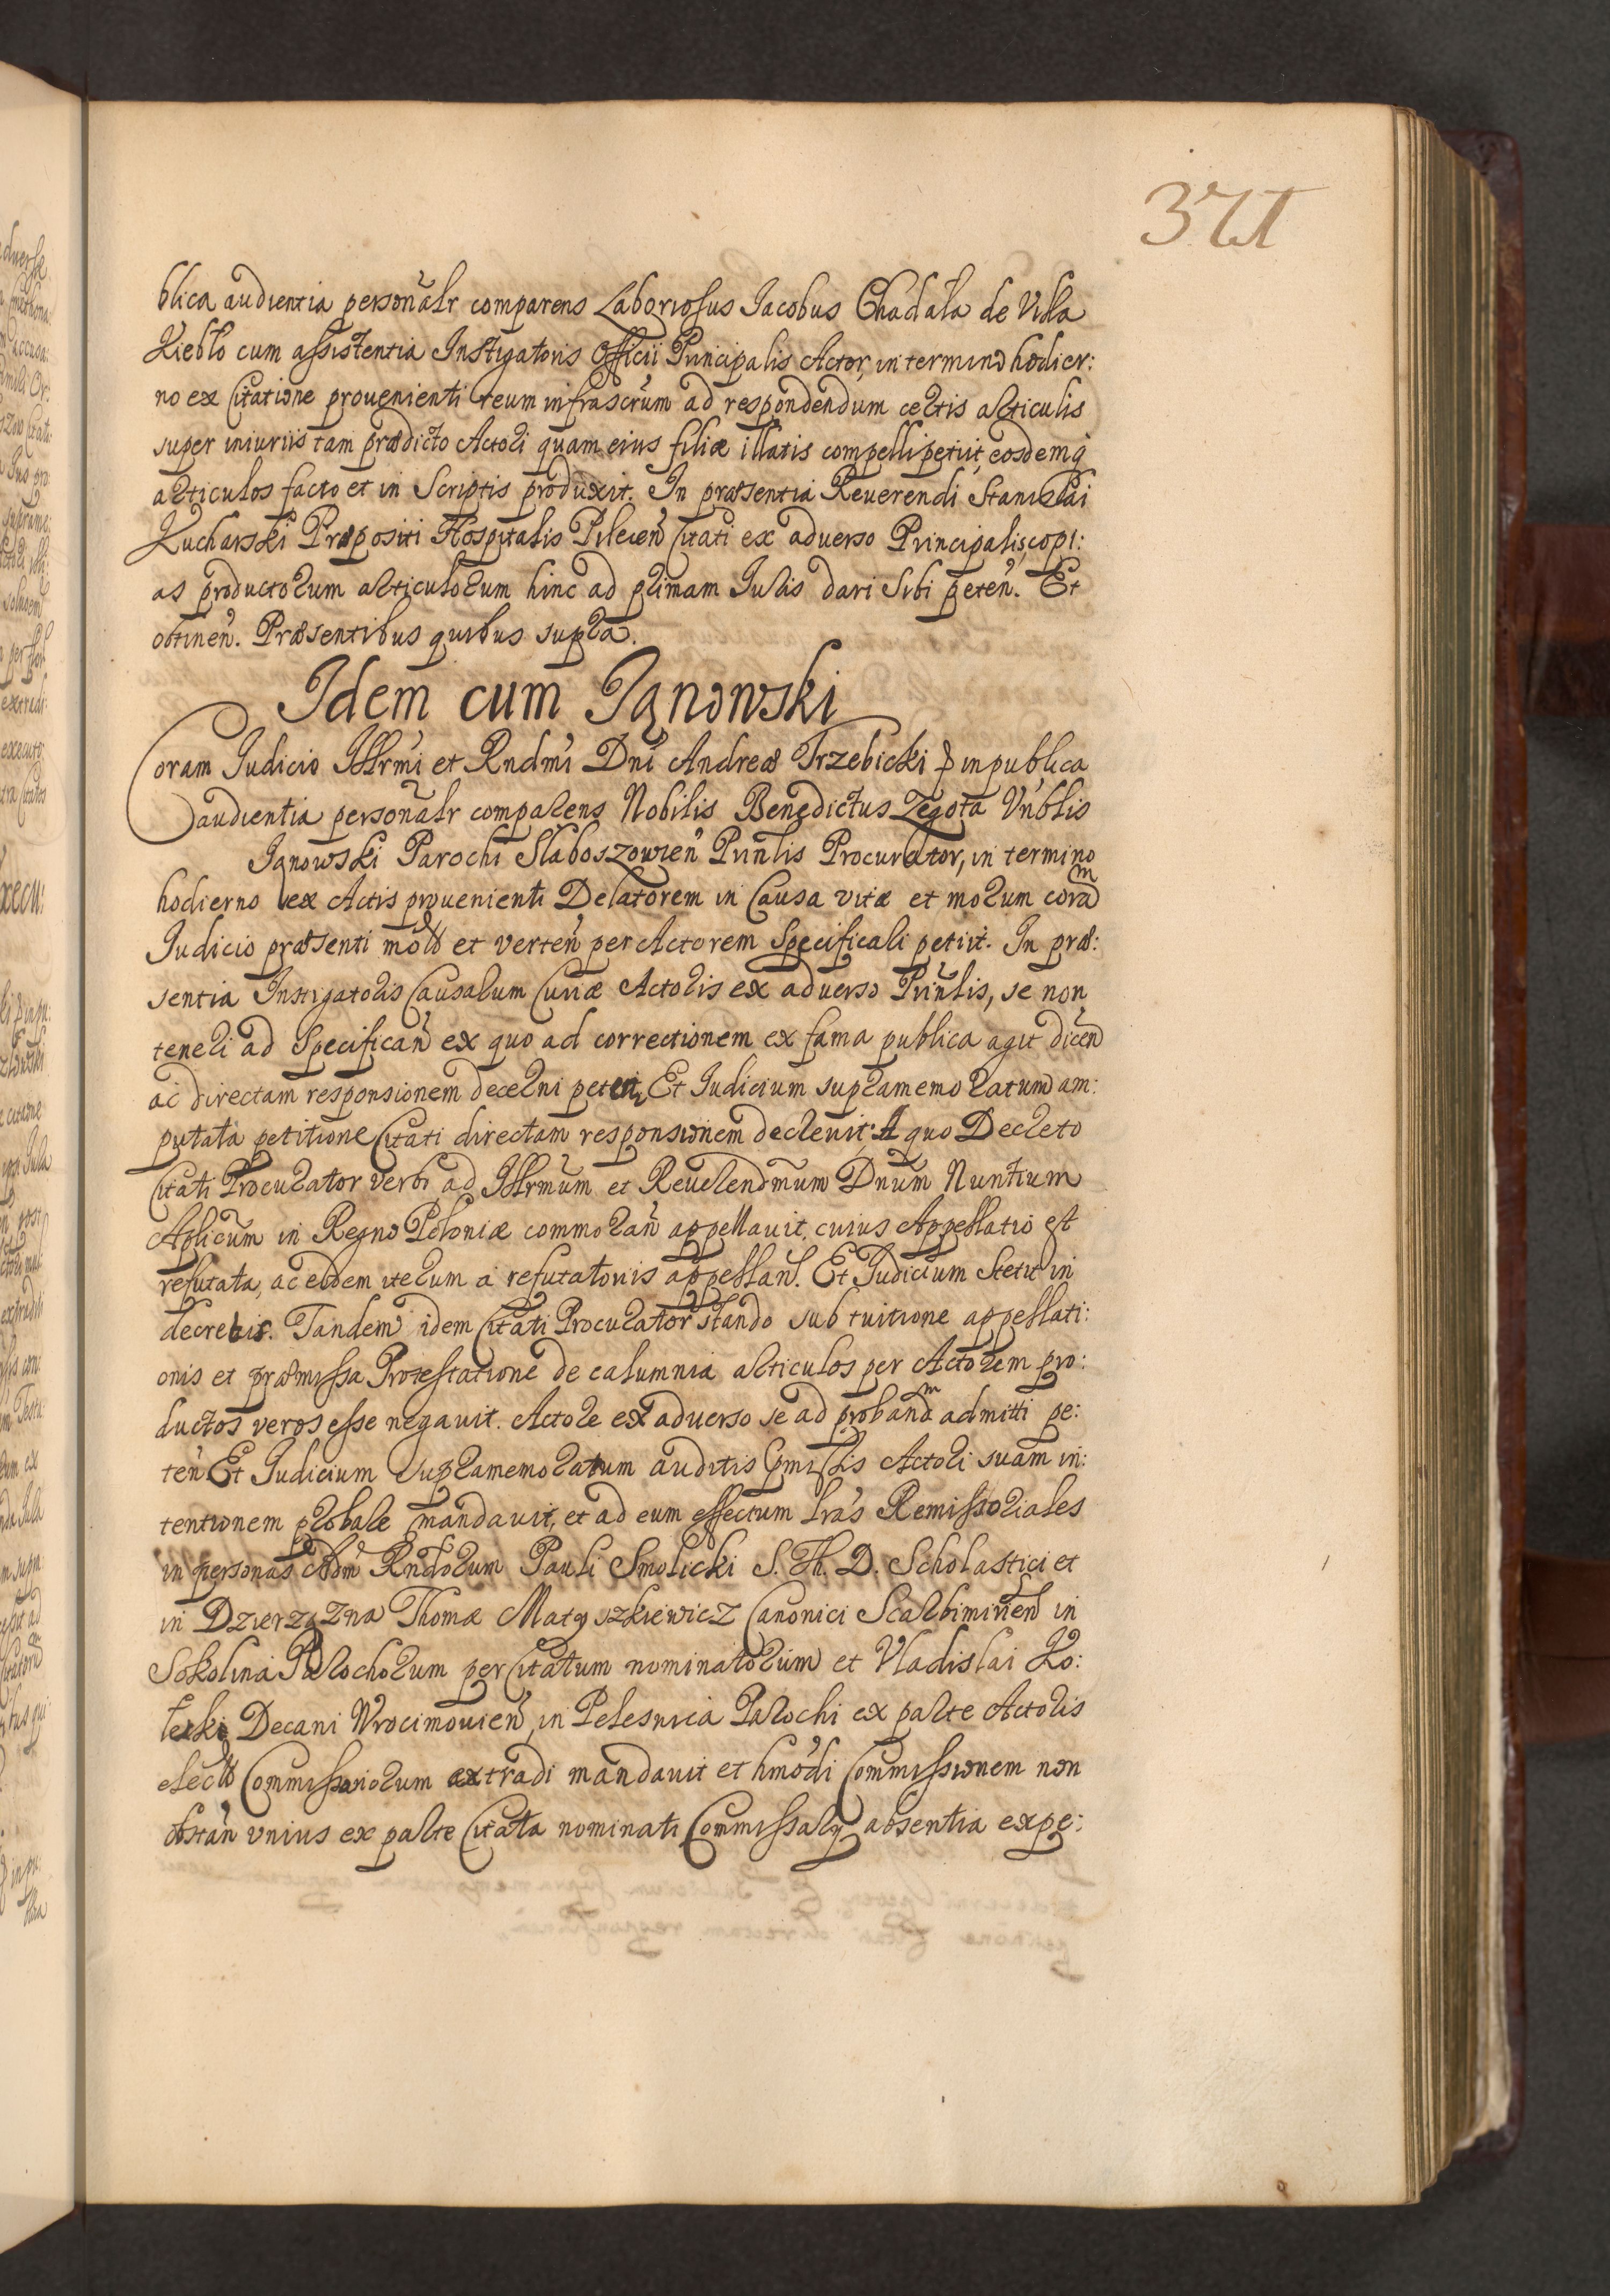 371
blica audientia personalr comparens Laboriosus Jacobus Chadała de Villa
Kiebło cum assistentia Instigatoris Officii Principalis Actor, in termino hodier:
no ex Citatione provenienti reum infrascrum ad respondendum certis articulis
super iniuriis tam prædicto Actori quam eius filiæ illatis compelli petiit, eosdemq
articulos facto et in Scriptis produxit. In præsentia Reverendi Stanislai
Kucharski Præpositi Hospitalis Pilecen Citati ex adverso Principalis, copi:
as productorum articulorum hinc ad primam Juris dari Sibi peten. Et
obtinen. Præsentibus quibus supra.
Idem cum Janowski
Coram Judicio Illrmi et Rndmi Dni Andreæ Trzebicki p in publica
audientia personalr comparens Nobilis Benedictus Zegota Vnblis
Janowski Parochi Słaboszowien Prinlis Procurator, in termino
hodierno ex Actis provenienti Delatorem in Causa vitæ et morum coram
Judicio præsenti et verten per Actorem Specificari petiit. In præ:
sentia Instigatoris Causarum Curiæ Actoris ex adverso Prinlis, se non
teneri ad Specifican ex quo ad correctionem ex fama publica agit dicen
ac directam responsionem decerni peten, Et Judicium supramemoratum am:
putata petitione Citati directam responsionem decrevit. A quo Decreto
Citati Procurator verbi ad Illrmum et Reverendmum Dnum Nuntium
Aplicum in Regno Poloniæ commoran appellavit, cuius Appellatio est
refutata, ac eidem iterum a refutatoriis appellan. Et Judicium Stetit in
decretis. Tandem idem Citati Procurator stando sub tuitione appellati:
onis et præmissa Protestatione de calumnia articulos per Actorem pro:
ductos veros esse negavit. Actore ex adverso se ad proband admitti pe:
ten Et Judicium supramemoratum auditis pmissis Actori suam in:
tentionem probare mandavit, et ad eum effectum lras Remissoriales
in personas Adm Rndorum Pauli Smolicki S. Th. D. Scholastici et
in Dzierzązna Thomæ Matyszkiewicz Canonici Scarbimirien in
Sokolina Parochorum per Citatum nominatorum et Vladislai Ko:
Decani Wrocimovien, in Pelesnica Parochi ex parte Actoris
Commissariorum extradi mandavit et hmodi Commissionem non
obstan vnius ex parte Citata nominati Commissarij absentia expe: